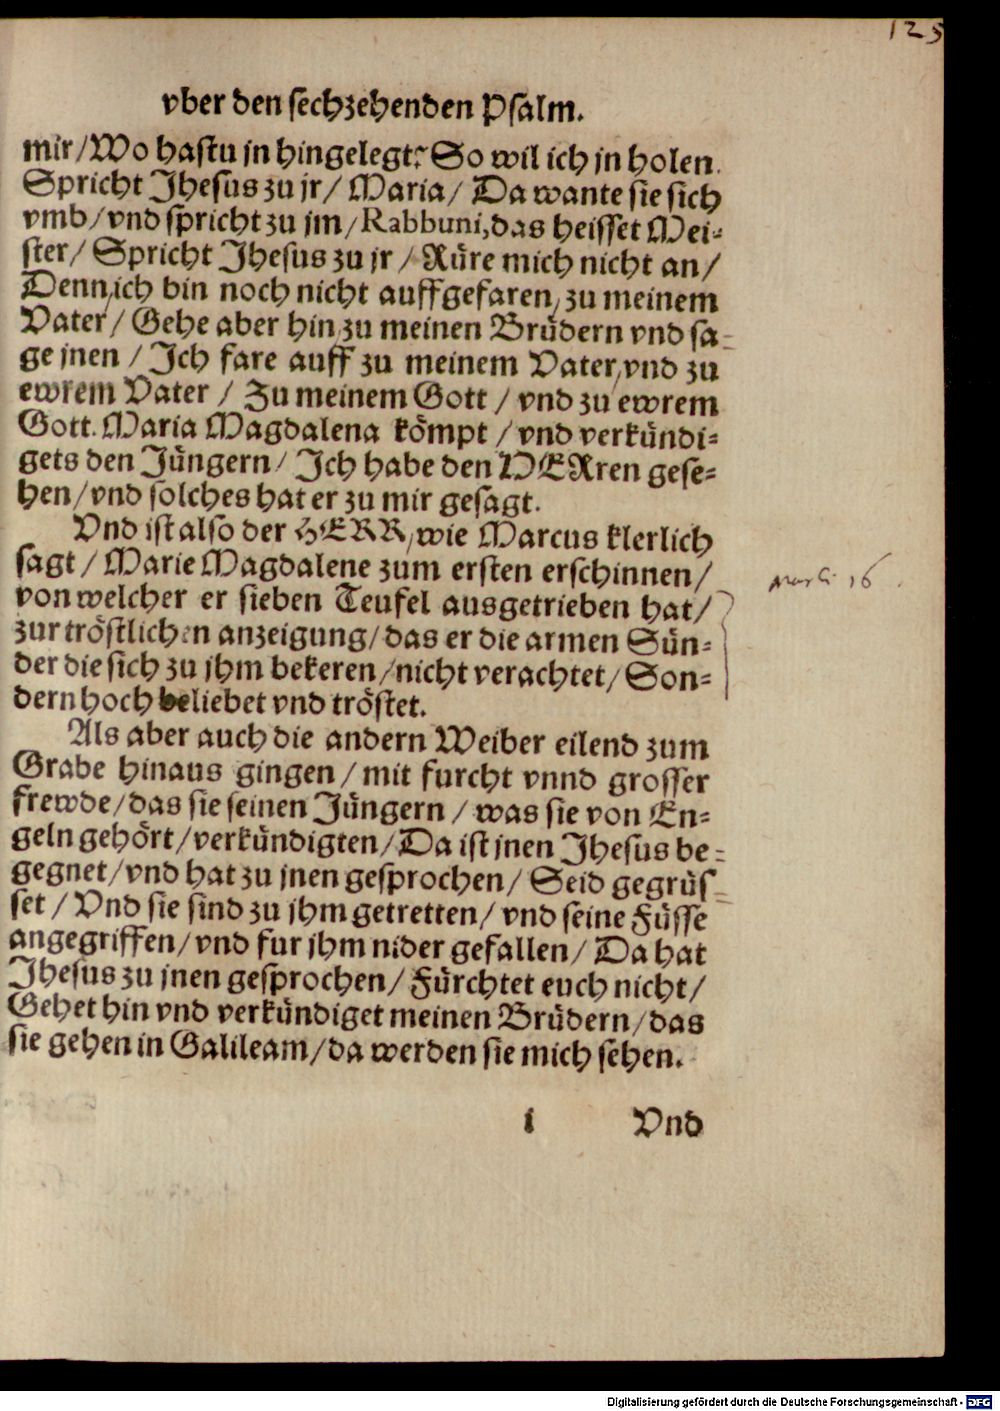 125
vber den sechzehenden Psalm.
mir/Wo hastu jn hingelegt? So wil ich jn holen.
Spricht Jhesus zu jr/ Maria/ Da wante sie sich
vmb/vnd spricht zu jm/Rabbuni,das heisset Mei-
ster/ Spricht Jhesus zu jr / Rüre mich nicht an/
Denn,ich bin noch nicht auffgefaren, zu meinem
Vater/ Gehe aber hin,zu meinen Brüdern vnd sa-
ge jnen / Jch fare auff zu meinem Vater,vnd zu
ewrem Vater / Zu meinem Gott / vnd zu ewrem
Gott. Maria Magdalena kömpt / vnd verkündi-
gets den Jüngern/ Jch habe den HERren gese-
hen/vnd solches hat er zu mir gesagt.
Vnd ist also der HERR,wie Marcus klerlich
sagt / Marie Magdalene zum ersten erschinnen/
von welcher er sieben Teufel ausgetrieben hat/
zur tröstlichen anzeigung/das er die armen Sün-
der die sich zu jhm bekeren/nicht verachtet/Son-
dern hoch beliebet vnd tröstet.
Als aber auch die andern Weiber eilend zum
Grabe hinaus gingen / mit furcht vnnd grosser
frewde/das sie seinen Jüngern / was sie von En-
geln gehört/verkündigten/Da ist jnen Jhesus be-
gegnet/vnd hat zu jnen gesprochen/ Seid gegrüs-
set / Vnd sie sind zu jhm getretten/ vnd seine Füsse
angegriffen/vnd fur jhm nider gefallen/ Da hat
Jhesus zu jnen gesprochen/ Fürchtet euch nicht/
Gehet hin vnd verkündiget meinen Brüdern/das
sie gehen in Galileam/da werden sie mich sehen.
i Vnd
16.
Digitalisierung gefördert durch die Deutsche Forschungsgemeinschaft - DFG